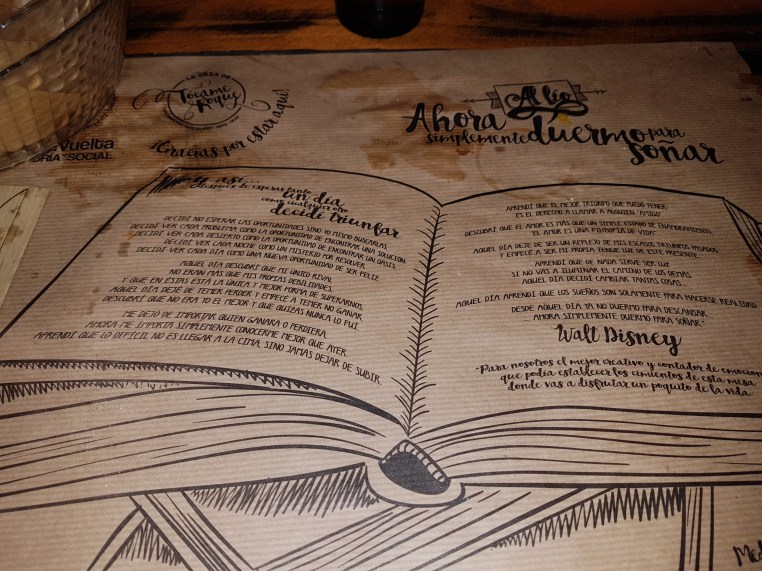 LA CASA DE
Tócame
Roque
¡Gracias por estar aquí!
Vuelta
SOCIAL
Al lío
Ahora
simplemente duermo para
soñar
Y así...
después de esperar tanto
un día
como cualquier otro
decidí triunfar
DECIDÍ NO ESPERAR LAS OPORTUNIDADES SINO YO MISMO BUSCARLAS.
DECIDÍ VER CADA PROBLEMA COMO LA OPORTUNIDAD DE ENCONTRAR UNA SOLUCIÓN.
DECIDÍ VER CADA DESIERTO COMO LA OPORTUNIDAD DE ENCONTRAR UN OASIS.
DECIDÍ VER CADA NOCHE COMO UN MISTERIO POR RESOLVER.
DECIDÍ VER CADA DÍA COMO UNA NUEVA OPORTUNIDAD DE SER FELIZ.
AQUEL DÍA DESCUBRÍ QUE MI ÚNICO RIVAL
NO ERAN MÁS QUE MIS PROPIAS DEBILIDADES,
Y QUE EN ÉSTAS ESTÁ LA ÚNICA Y MEJOR FORMA DE SUPERARNOS.
AQUEL DÍA DEJÉ DE TEMER PERDER Y EMPECÉ A TEMER NO GANAR.
DESCUBRÍ QUE NO ERA YO EL MEJOR Y QUE QUIZÁS NUNCA LO FUI.
ME DEJÓ DE IMPORTAR QUIEN GANARA O PERDIERA.
AHORA ME IMPORTA SIMPLEMENTE CONOCERME MEJOR QUE AYER.
APRENDÍ QUE LO DIFÍCIL NO ES LLEGAR A LA CIMA, SINO JAMÁS DEJAR DE SUBIR.
APRENDÍ QUE EL MEJOR TRIUNFO QUE PUEDO TENER,
ES EL DERECHO A LLAMAR A ALGUIEN "AMIGO"
DESCUBRÍ QUE EL AMOR ES MÁS QUE UN SIMPLE ESTADO DE ENAMORAMIENTO,
"EL AMOR ES UNA FILOSOFÍA DE VIDA".
AQUEL DÍA DEJÉ DE SER UN REFLEJO DE MIS ESCASOS TRIUNFOS PASADOS
Y EMPECÉ A SER MI PROPIA TENUE LUZ DE ESTE PRESENTE.
APRENDÍ QUE DE NADA SIRVE SER LUZ
SI NO VAS A ILUMINAR EL CAMINO DE LOS DEMÁS.
AQUEL DÍA DECIDÍ CAMBIAR TANTAS COSAS...
AQUEL DÍA APRENDÍ QUE LOS SUEÑOS SON SOLAMENTE PARA HACERSE REALIDAD
DESDE AQUEL DÍA YA NO DUERMO PARA DESCANSAR...
... AHORA SIMPLEMENTE DUERMO PARA SOÑAR."
Walt Disney
"Para nosotros el mejor creativo y contador de emocion
que podía establecer los cimientos de esta mesa
donde vas a disfrutar un poquito de la vida